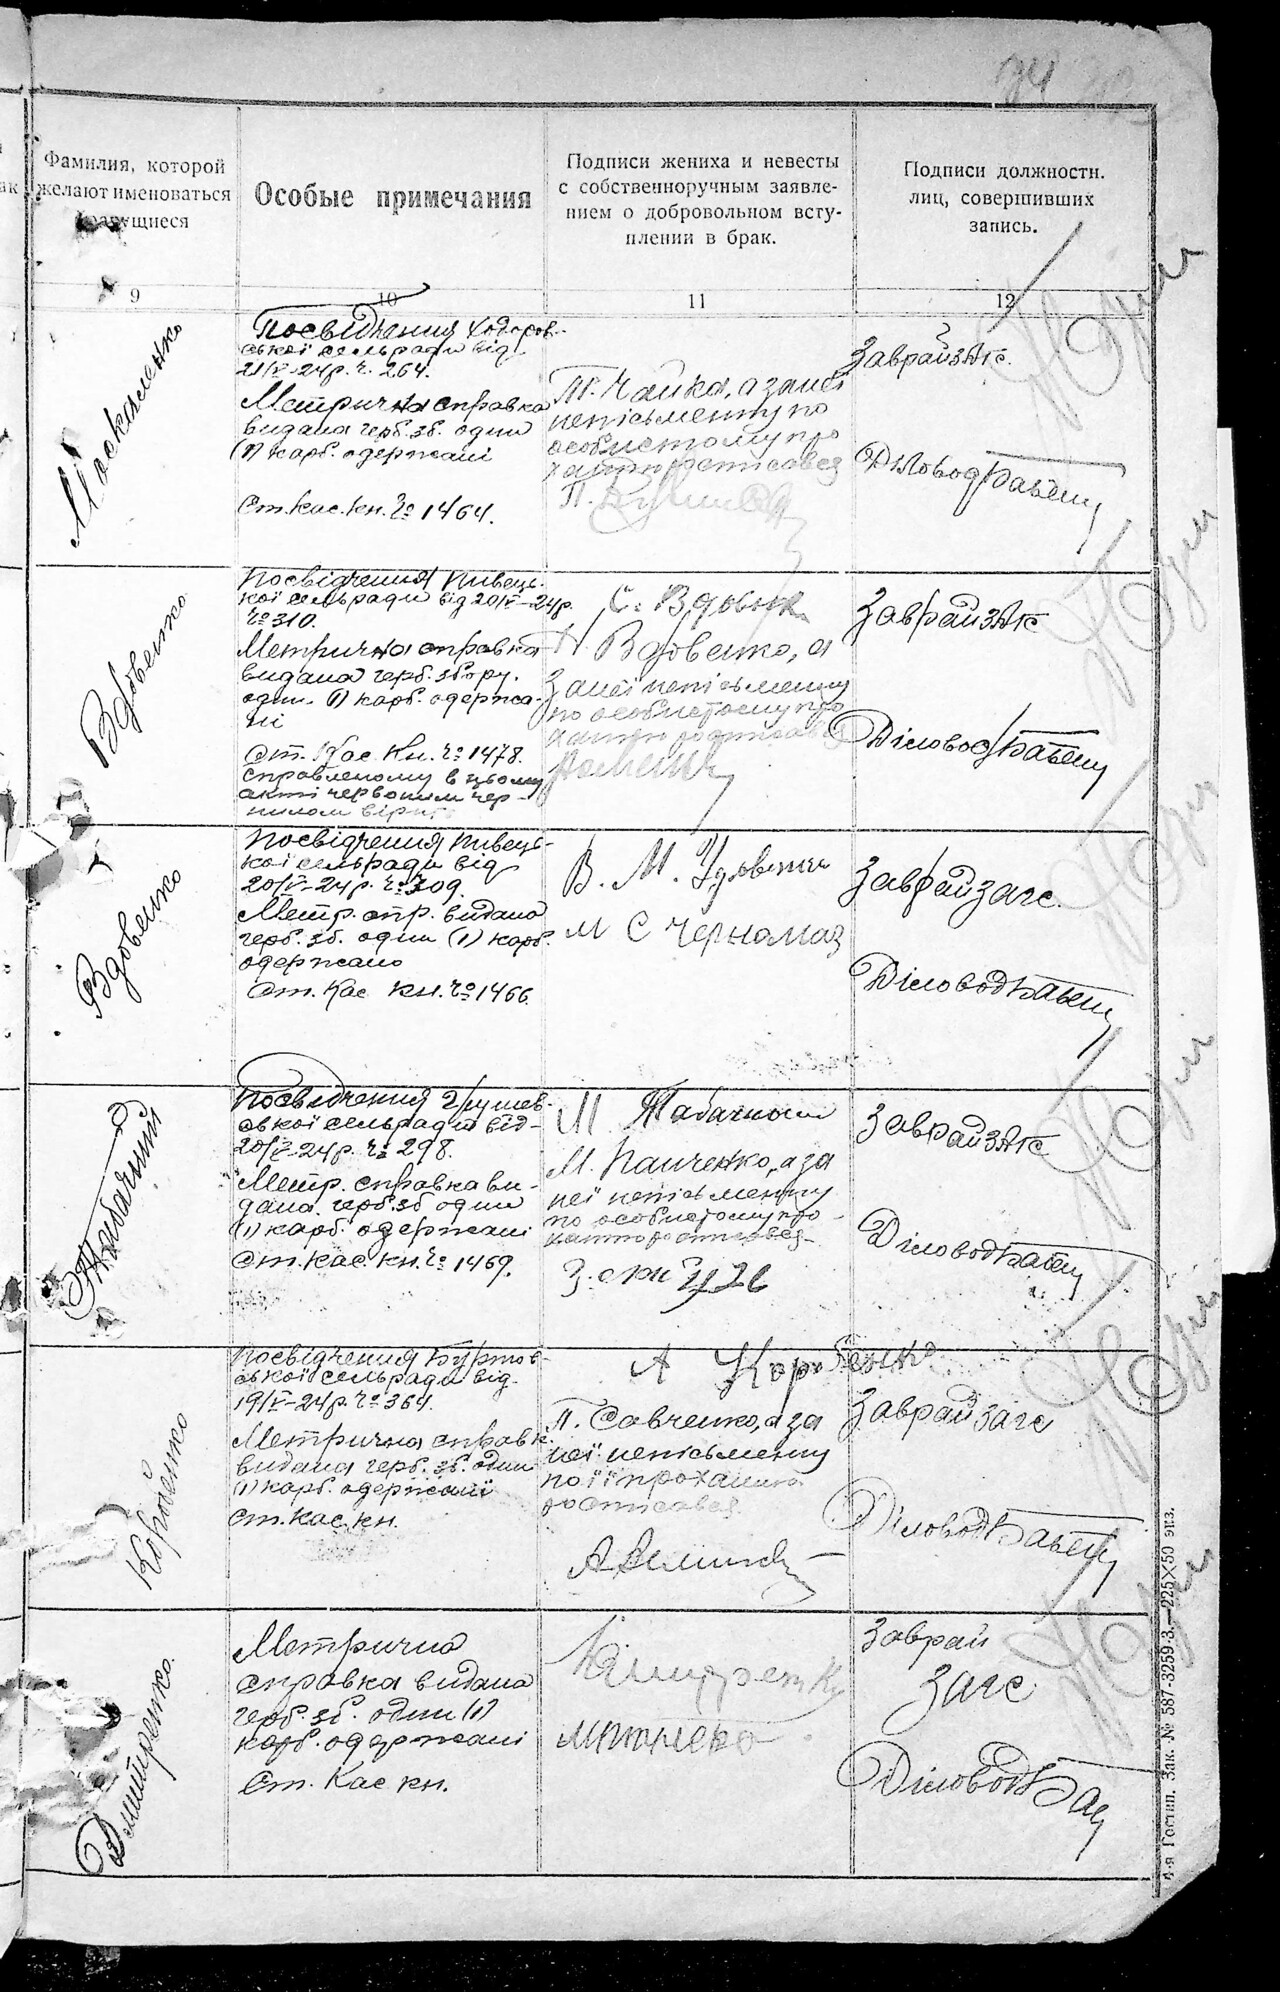 74
Фамилия, которой
желают именоваться
брачущиеся
Особые примечания
Подписи жениха и невесты
с собственноручным заявле-
нием о добровольном всту-
плении в брак.
Подписи должностн.
лиц, совершивших
запись.
9
10
11
12
Москаленко
Посвідчення Ходоров-
ської сельради від
21/V-24р. ч. 264.
Метрична справка
видана герб. зб. один
(1) карб. одержані
Ст. кас. кн. № 1464.
Т. Чайка, а за неї
неписьменну по
особистому про
ханню росписався
П.
Заврайзагс.
Діловод
Вдовенко
Посвідчення Пивець-
кої сельради від 20/V-24р.
№ 310.
Метрична справка
видана герб. збору.
один (1) карб. одержа-
ні
Ст. Кас Кн. № 1478.
справленому в цьому
акті червоним чер-
нилом вірити
С. Вдовик
Вдовенко, а
за неї неписьменну
по особистому про
ханню росписався
Заврайзагс
Діловод
Вдовенко
Посвідчення Пивець-
кої сельради від
20/V-24р. № 309.
Метр. спр. видана
герб. зб. один (1) карб.
одержано
Ст. Кас кн. № 1466.
В. М. Удовенко
М С Черномаз
Заврайзагс.
Діловод
Табачний
Посвідчення Грушев-
ської сельради від-
20/V-24р. № 298.
Метр. справка ви-
дана. герб. зб один
(1) карб. одержані
Ст. Кас. кн. № 1469.
М Табачний
М. Панченко, а за
неї неписьменну
по особистому про-
ханню росписавсь
Заврайзагс
Діловод
Коробенко
Посвідчення Буртов-
ської сельради від.
19/V-24р. № 364.
Метрична справк.
видана герб. зб. один
(1) карб. одержані
Ст. Кас. кн.
А Коробенко
П. Савченко, а за
неї неписьменну
по її проханню
росписався.
Заврайзагс
Діловод
Дмитренко.
Метрична
справка видана
герб. зб. один (1)
карб. одержані
Ст. Кас кн.
Заврай
загс
Діловод
4-я Гостип. Зак. № 587-3259-3.—225×50 экз.